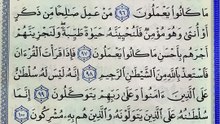 مَا كَانُوا۟ يَعْمَلُونَ ٩٦ مَنْ عَمِلَ صَـٰلِحًا مِّن ذَكَرٍ
أَوْ أُنثَىٰ وَهُوَ مُؤْمِنٌ فَلَنُحْيِيَنَّهُۥ حَيَوٰةً طَيِّبَةً وَلَنَجْزِيَنَّهُمْ
أَجْرَهُم بِأَحْسَنِ مَا كَانُوا۟ يَعْمَلُونَ ٩٧ فَإِذَا قَرَأْتَ ٱلْقُرْءَانَ
فَٱسْتَعِذْ بِٱللَّهِ مِنَ ٱلشَّيْطَـٰنِ ٱلرَّجِيمِ ٩٨ إِنَّهُۥ لَيْسَ لَهُۥ سُلْطَـٰنٌ
عَلَى ٱلَّذِينَ ءَامَنُوا۟ وَعَلَىٰ رَبِّهِمْ يَتَوَكَّلُونَ ٩٩ إِنَّمَا سُلْطَـٰنُهُۥ
عَلَى ٱلَّذِينَ يَتَوَلَّوْنَهُۥ وَٱلَّذِينَ هُم بِهِۦ مُشْرِكُونَ ١٠٠